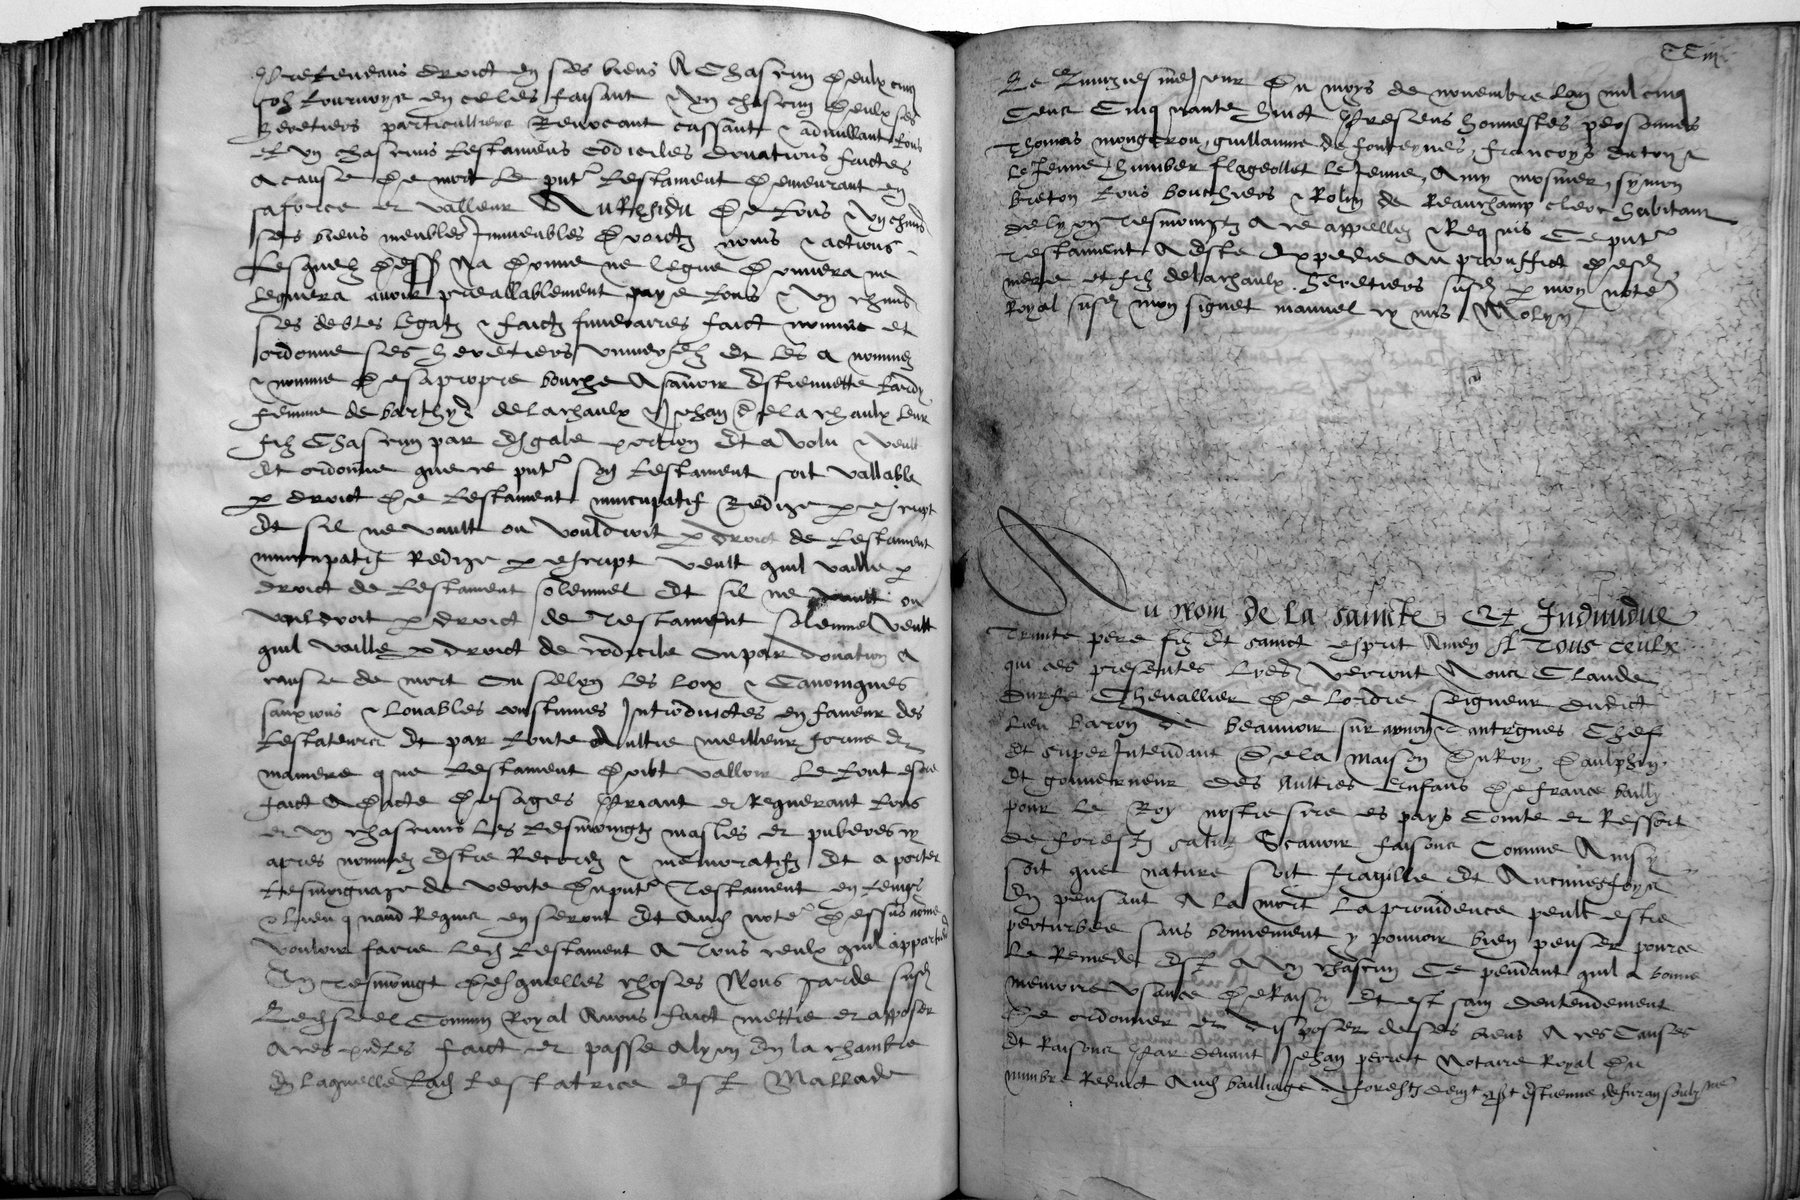 pretendans droict en ses biens A Chascun deulx cinq
solz tournoys en celles faisant & ung chascun deulx ses
heretiers particulliers Revocant cassant & adnullant tous
et ung chascuns testamens codiciles donations faictes
a cause de mort le pnt Testament demeurant en
sa force et valleur Au Residu de tous & ung chund
ses biens meubles Immeubles droictz noms & actions
Lesquelz dess Na donne ne legue donnera ne
leguera avoir preallablement paye tous & ung chund
ses debtes legatz & faictz funerarires faict nomme et
ordonne ses heretiers universelz Et les a nommez
& nomme de sa propre bouche Asavoir Estiennette tardy
femme de barthy delachaulx & Jehan de la chaulx leur
filz Chascun par Esgale portion Et a volu & veult
Et ordonne que ce pnt son testament soit vallable
p droict de testament nuncupatif Redige p escript
Et sil ne vault ou vouldroit p droict de testament
nuncupatif Redige p escript veult quil vaille p
droict de testament solemnel Et sil ne vault ou
vouldroit p droict de Testament solemnel veult
quil vaille p droict de codicile ou par donation A
cause de mort Ou selon les loix & Canoniques
sanxions & louables coustumes Introduictes en faveur des
testateurs Et par toute Aultre meilleur forme et
maniere que testament doibt valloir Le tout estre
faict A dicte de sages Priant et Requerant tous
et ung chascuns les tesmoingtz masles et puberes cy
apres nommez Estre Recordz & memoratifz Et a porter
tesmoignage de verite du pnt Testament en temps
& lieu quand Requis en seront Et Aud note dessus nome
vouloir faire led Testament A Tous ceulx quil appartiend
En Tesmoingt desquelles choses Nous garde susd
Led seel Commun Royal Avons faict mettre et apposer
A ces pntes faict et passe A lyon En la chambre
En laquelle lad testatrice Est Mallade
CCiij
Le unziesme Jour Du moys de novembre lan mil cinq
Cens Cinquante huict Presens honnestes personnes
Thomas mongiron, guillaume de fonteynes, francoys duton
le Jeune, humber flageollet le Jeune, Amy mosnier, symon
breton tous bouchiers & Rolin de Beauchamp clerc habitans
de lyon Tesmoingtz A ce appellez & Requis Ce pnt
Testament A este Expedie Au prouffict desd
mere et filz delachaulx heretiers susd p moy note
Royal susd mon signet manuel cy mis Molyn
Au Nom de La saincte Et Indiudue
Trinite pere filz Et sainct esprit Amen A Tous ceulx
qui ces presentes Lres verront Nous Claude
Durfe Chevallier De lordre seigneur dudict
lieu baron de beauvoir sur arnon & antrgues Chef
Et super Intendant De la maison Du Roy Daulphin
Et gouverneur des Aultres Enfans De france bailly
pour le Roy nostre sire es pays Comte et Ressort
De forestz salut Scavoir faisons Comme Ainsy
soit que nature soit fragille Et Aucunesfoys
En pensant A la mort La providence peult estre
perturbee sans bonnement y pouvoir bien penser pource
Le Remede Est A ung chascun Ce pendant quil a bonne
memoire usance De Raison Et est sain dentendement
De ordonner et disposer de ses biens A ces Causes
Et Raisons Par devant Jehan perret Notaire Royal du
numbre Reduict Aud bailliage de forestz Estienne de furan soubz